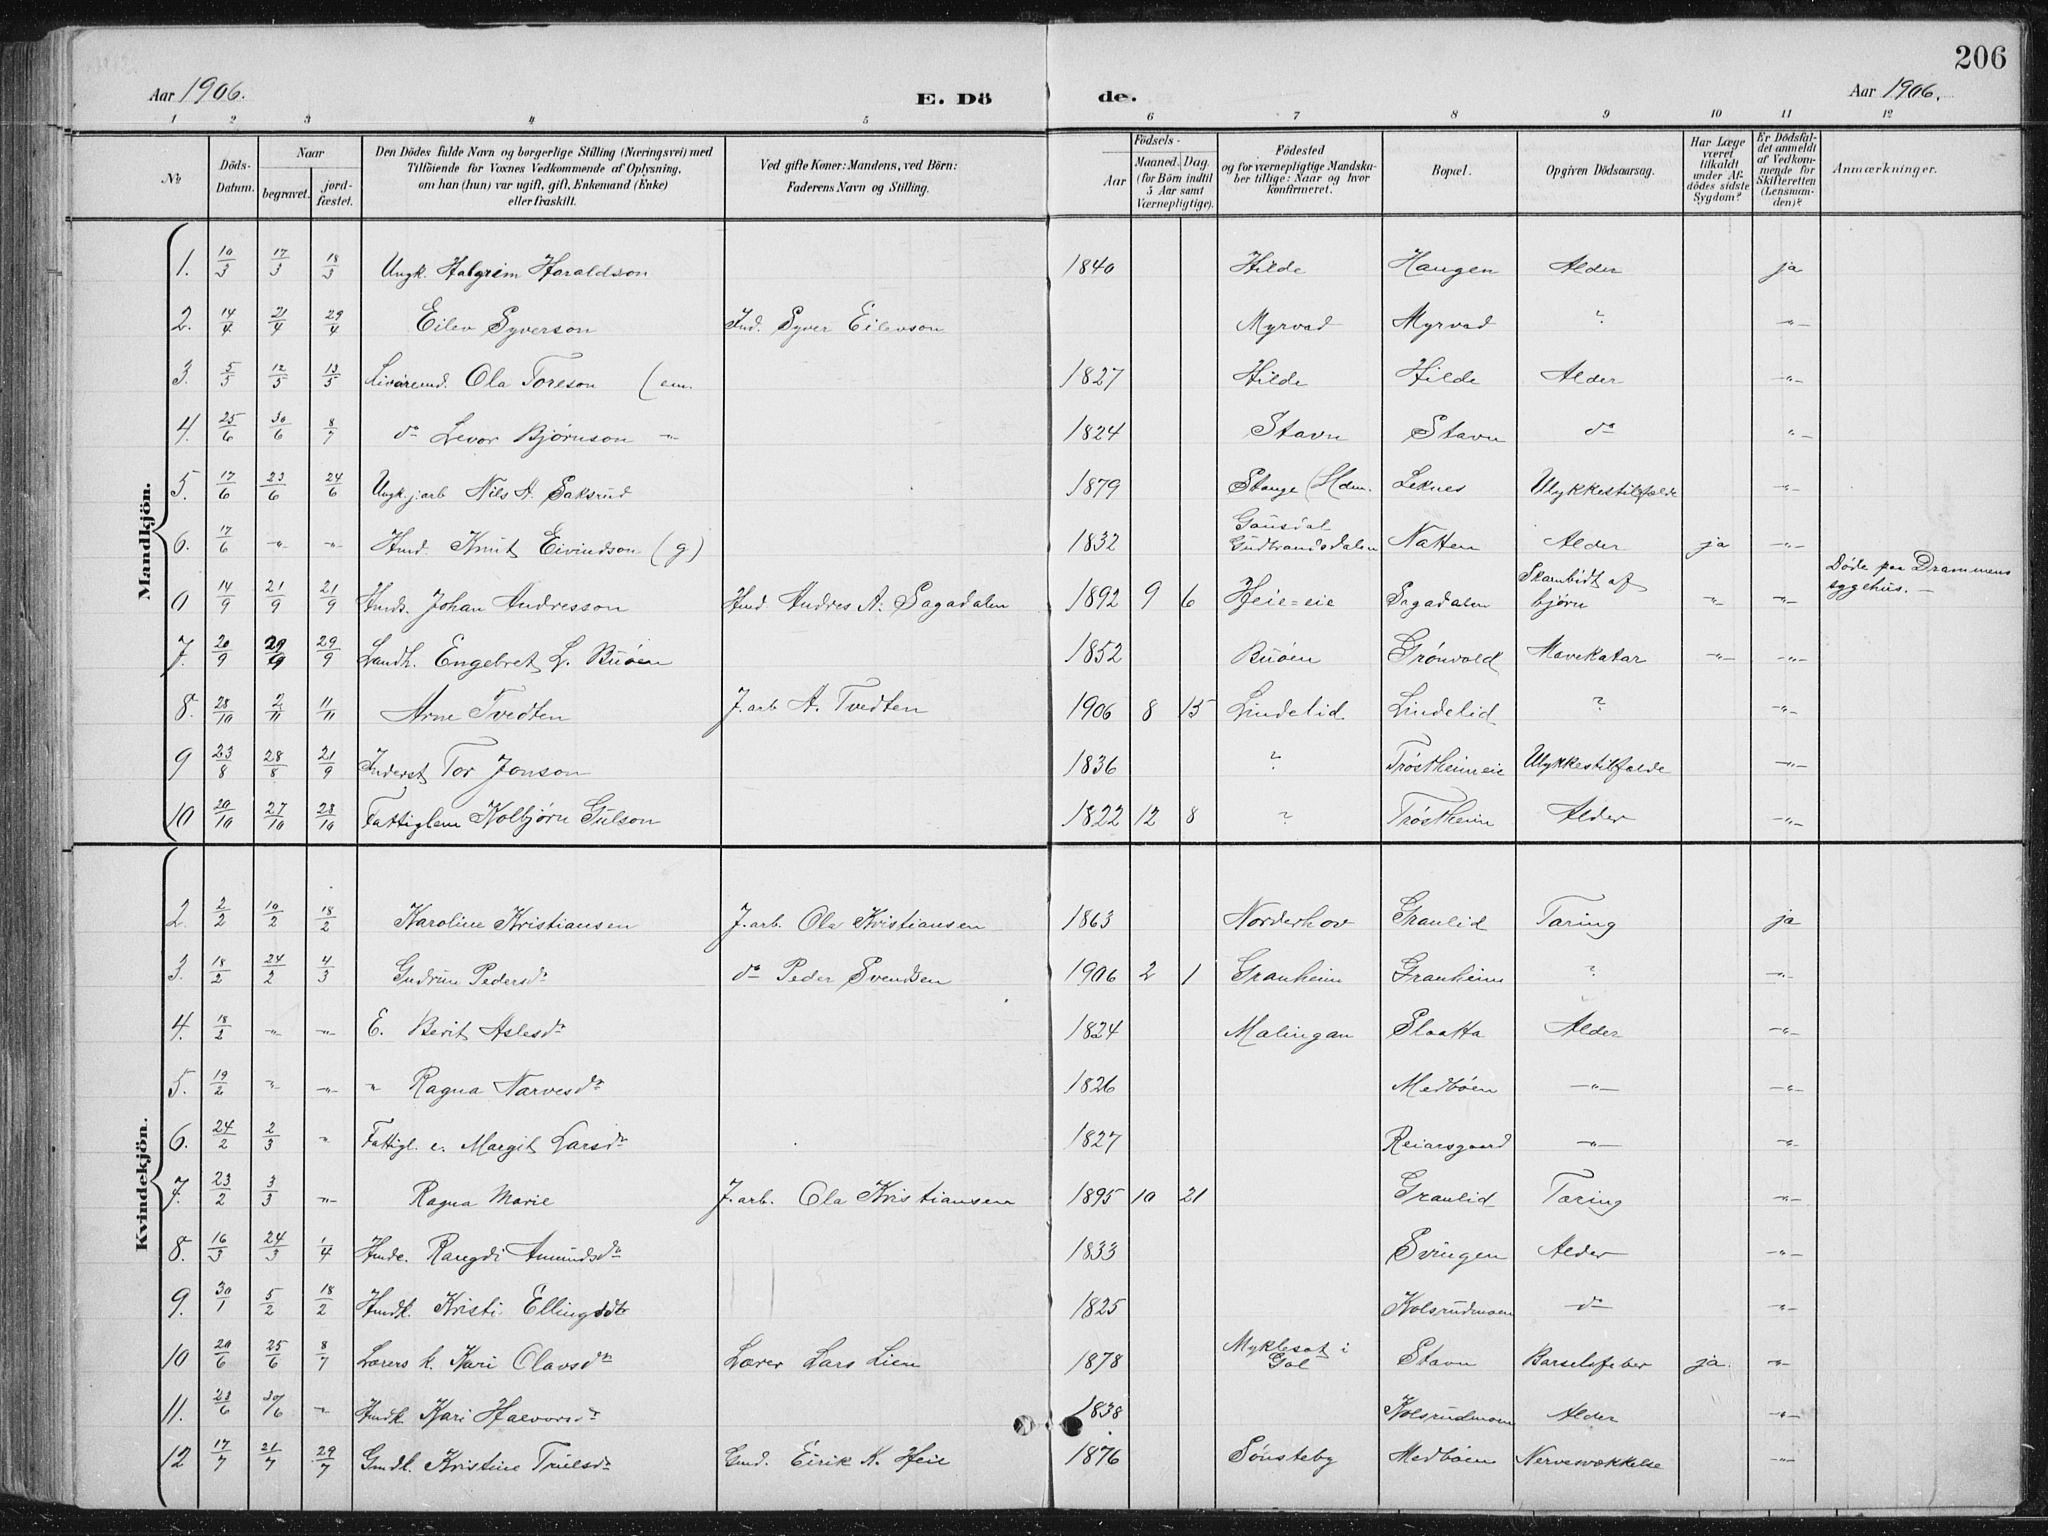 206
Aar 1906. E. Dö de. Aar 1906.
1 2 3 4 5 6 7 8 9 10 11 12
No Döds-Datum. Naar begravet. jord-fæstet. Den Dödes fulde Navn og borgerlige Stilling (Næringsvei) med Tilföiende for Voxnes Vedkommende af Oplysning, om han (hun) var ugift, gift, Enkemand (Enke) eller fraskilt. Ved gifte Koner: Mandens, ved Börn: Faderens Navn og Stilling. Födsels- Aar Maaned. Dag. (for Börn indtil 5 Aar samt Værnepligtige). Födested og for værnepligtige Mandskaber tillige: Naar og hvor konfirmeret. Bopæl. Opgiven Dödsaarsag. Har Læge været tilkaldt under Afdödes sidste Sygdom? Er Dödsfaldet anmeldt af Vedkommende for Skifteretten (Lensmanden)? Anmærkninger.
Mandkjön.
1. 10/3 17/3 18/3 Ungk. Halgrim Haraldson 1840 Hilde Haugen Alder ja
2. 14/4 21/4 29/4 Eilev Syverson Ind. Syver Eilevson Myrvad Myrvad ? -"-
3. 5/5 12/5 13/5 Livøremd. Ola Toreson (em. 1827 Hilde Hilde Alder -"-
4. 25/6 30/6 8/7 do Levor Bjørnson -"- 1824 Stavn Stavn do -"-
5. 17/6 23/6 24/6 Ungk. j.arb Nils A. Saksrud 1879 Stange (Hdm. Leknes Ulykkestilfælde -"-
6. 17/6 -"- -"- Hmd. Knut Eivindson (g) 1832 Gausdal Gudbrandsdalen Natten Alder ja -"-
0 14/9 21/9 21/9 Hmds. Johan Andresson Hmd. Andres A. Sagadalen 1892 9 6 Heie=eie Sagadalen Skambidt af bjørn -"- -"- Døde paa Drammens sygehus.
7. 20/9 29/9 29/9 Landh. Engebret L. Buøen 1852 Buøen Grønvold Mavekatar -"- -"-
8. 28/10 2/11 11/11 Arne Tvedten J.arb A. Tvedten 1906 8 15 Lindelid Lindelid ? -"-
9 23/8 28/8 21/9 Inderst Tor Jonson 1836 ? Trøstheimeie Ulykkestilfælde -"-
10 20/10 27/10 28/10 Fattiglem Kolbjørn Gulson 1822 12 8 ? Trøstheim Alder -"-
Kvindekjön.
2. 2/2 10/2 18/2 Karoline Kristiansen J.arb. Ola Kristiansen 1863 Norderhov Granlid Tæring ja
3. 18/2 24/2 4/3 Gudrun Pedersdr do Peder Svendsen 1906 2 1 Granheim Granheim ? -"-
4. 18/2 -"- -"- E. Berit Aslesdr 1824 Malingan Slaatta Alder -"-
5. 19/2 -"- -"- " Ragna Narvesdr 1826 Medbøen -"- -"-
6. 24/2 2/3 " Fattigl. e. Margit Larsdr 1827 Reiarsgaard -"- -"-
7. 23/2 3/3 -"- Ragna Marie J.arb. Ola Kristiansen 1895 10 21 Granlid Tæring -"-
8. 16/3 24/3 1/4 Hmde. Rangdi Amundsdr 1833 Svingen Alder -"-
9. 30/1 5/2 18/2 Hmdk. Kristi Ellingsdtr 1825 Kolsrudmoen do -"-
10 20/6 25/6 8/7 Lærers k. Kari Olavsdr Lærer Lars Lien 1878 Myklesat i Gol Stavn Barselsfeber ja. -"-
11. 23/6 30/6 -"- Hmdk. Kari Halvorsdr 1838 Kolsrudmoen Alder -"-
12 17/7 21/7 29/7 Gmdk. Kristine Truelsdr Gmd. Eirik K. Heie 1876 Sønsteby Medbøen Nervesvækkelse -"-